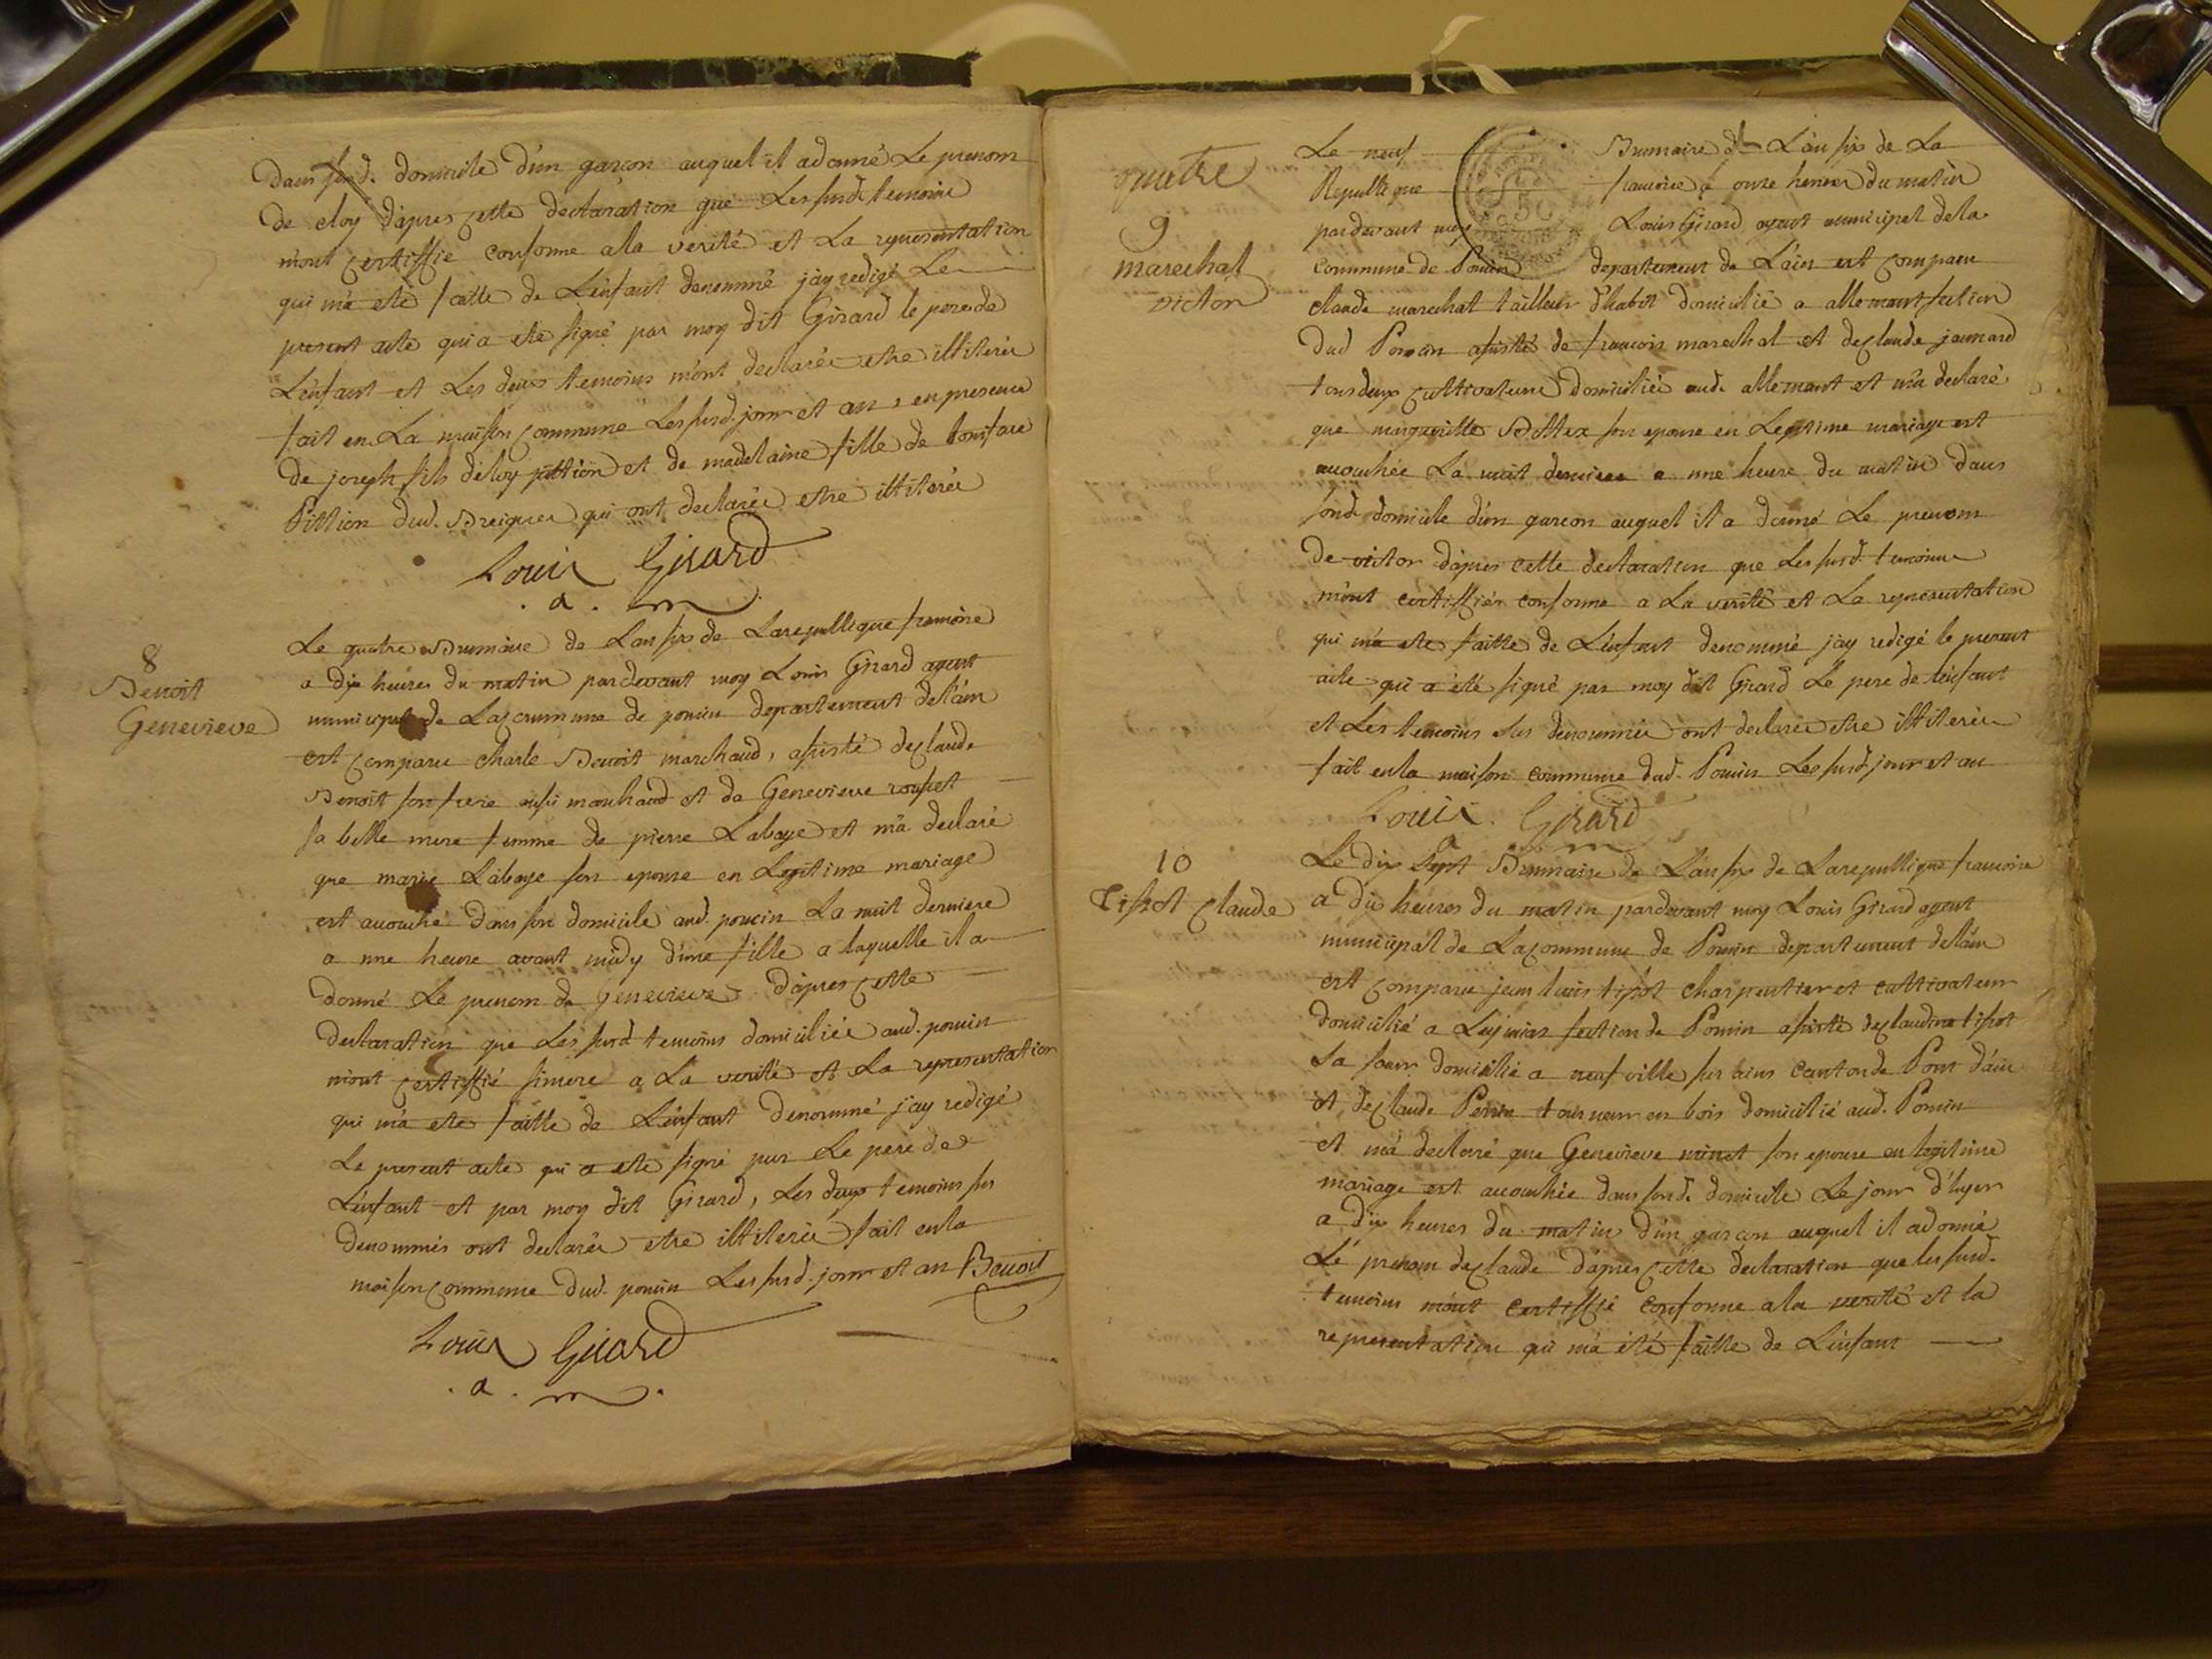 Dans sond. domicile d'un garcon auquel il a donné Le prenom
de eloy d'apres cette declaration que Les susd. temoins
m'ont certiffie conforme a la verité et La representation
qui m'a ete faitte de L'enfant denommé j'ay redigé Le
present acte qui a ete signé par moy dit Girard le pere de
L'enfant et Les deux temoins m'ont declarés etre illiterés
fait en La maison commune Les susd. jour et an, en presence
de joseph fils d'eloy pittion et de madelaine fille de bonifare
Pittion dud. qui ont declarés etre illiterés
Louis Girard
a. m
8
Benoit
Genevieve
Le quatre Brumaire de L'an six de La republlique francoise
a dix heures du matin pardevant moy Louis Girard agent
municipal de La commune de poncin departement de l'ain
est comparu charle Benoit marchand, assisté de claude
Benoit son frere aussi marchand et de Genevieve rousset
sa belle mere femme de pierre Labaye et m'a declaré
que marie Labaye son epouse en Legitime mariage
est accouché dans son domicile aud. poncin La nuit derniere
a une heure avant midy d'une fille a laquelle il a
donné Le prenom de Genevieve d'apres cette
declaration que Les susd temoins domiciliés aud. poncin
m'ont certiffié sincere a La verité et La representation
qui m'a ete faitte de L'enfant denommé j'ay redigé
Le present acte qui a ete signé par Le pere de
L'enfant et par moy dit Girard, Les deux temoins sus
denommés ont declarés etre illiterés fait en la
maison commune dud. poncin Les susd. jour et an Benoit
Louis Girard
a. m.
quatre
9
marechal
victor
Le neuf Brumaire de L'an six de La
Republlique francoise a onze heures du matin
pardevant moy Louis Girard agent municipal de la
commune de Poncin departement de L'ain est comparu
claude marechal tailleur d'habit domicilié a allement section
dud Poncin assisté de francois marechal et de claude jaunard
tous deux cultivateurs domiciliés aud. allement et m'a declaré
que margueritte son epouse en Legitime mariage est
accouchée La nuit derniere a une heure du matin dans
sond. domicile d'un garcon auquel il a donné Le prenom
de victor d'apres cette declaration que Les susd. temoins
m'ont certiffiés conforme a La verité et La representation
qui m'a ete faitte de L'enfant denommé j'ay redigé le present
acte qui a été signé par moy dit Girard Le pere de l'enfant
et Les temoins sus denommés ont declarés etre illiterés
fait en la maison commune dud. Poncin Les susd. jour et an
Louis Girard
a m
10
Tissot Claude
Le dix sept Brumaire de L'an six de La republlique francoise
a dix heures du matin pardevant moy Louis Girard agent
municipal de La commune de Poncin departement de l'ain
est comparu jean louis tissot charpentier et cultivateur
domicilié a section de Poncin assisté de claudine tissot
sa soeur domicilié a neufville sur ains canton de Pont d'ain
et de claude Perrin tourneur en bois domicilié aud. Poncin
et m'a declaré que Genevieve minet son epouse en legitime
mariage est accouchée dans sond. domicile Le jour d'hyer
a dix heures du matin d'un garcon auquel il a donné
Le prenom de claude d'apres cette declaration que les susd.
temoins m'ont certiffié conforme a la verité et la
representation qui m'a été faitte de L'enfant